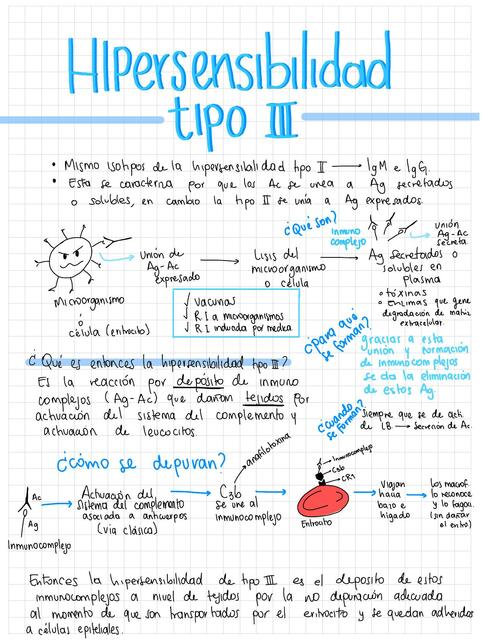 Hipersensibilidad
tipo III
• Mismo isotipos de la hipersensibilidad tipo II → IgM e IgG.
• Esta se caracteriza por que los Ac se unea a Ag secretados
o solubles, en cambio la tipo II se unía a Ag expresados.
¿Qué son?
Inmuno
complejo
unión
Ag-Ac
secreta
Unión de
Ag-Ac
expresado
Lisis del
microorganismo
o célula
Ag secretados o
solubles en
plasma
• tóxinas
• Enzimas que gene
degradación de matriz
extracelular.
Microorganismo
o
célula (eritrocito)
✓ vacunas
✓ R.I a microorganismos
✓ R.I inducida por medica
¿para qué
se forman?
gracias a esta
unión y formación
de inmunocomplejos
se da la eliminación
de estos Ag.
¿Qué es entonces la hipersensibilidad tipo III?
Es la reacción por deposito de inmuno
complejos (Ag-Ac) que dañan tejidos por
activación del sistema del complemento y
activación de leucocitos.
¿Cuándo
se forman?
Siempre que se de acti
de LB → Secreción de Ac.
¿Cómo se depuran?
anafilotoxina
Ac
Ag
Inmunocomplejo
Activación del
sistema del complemento
asociada a anticuerpos
(vía clásica)
C3b
Se une al
inmunocomplejo
Inmunocomplejo
C3b
CR1
Eritrocito
Viajan
hacia
bazo e
hígado
Los macrof
lo reconoce
y lo fagoci
(sin dañar
el eritro)
Entonces la hipersensibilidad de tipo III es el deposito de estos
inmunocomplejos a nivel de tejidos por la no depuración adecuada
al momento de que son transportados por el eritrocito y se quedan adheridos
a células epiteliales.